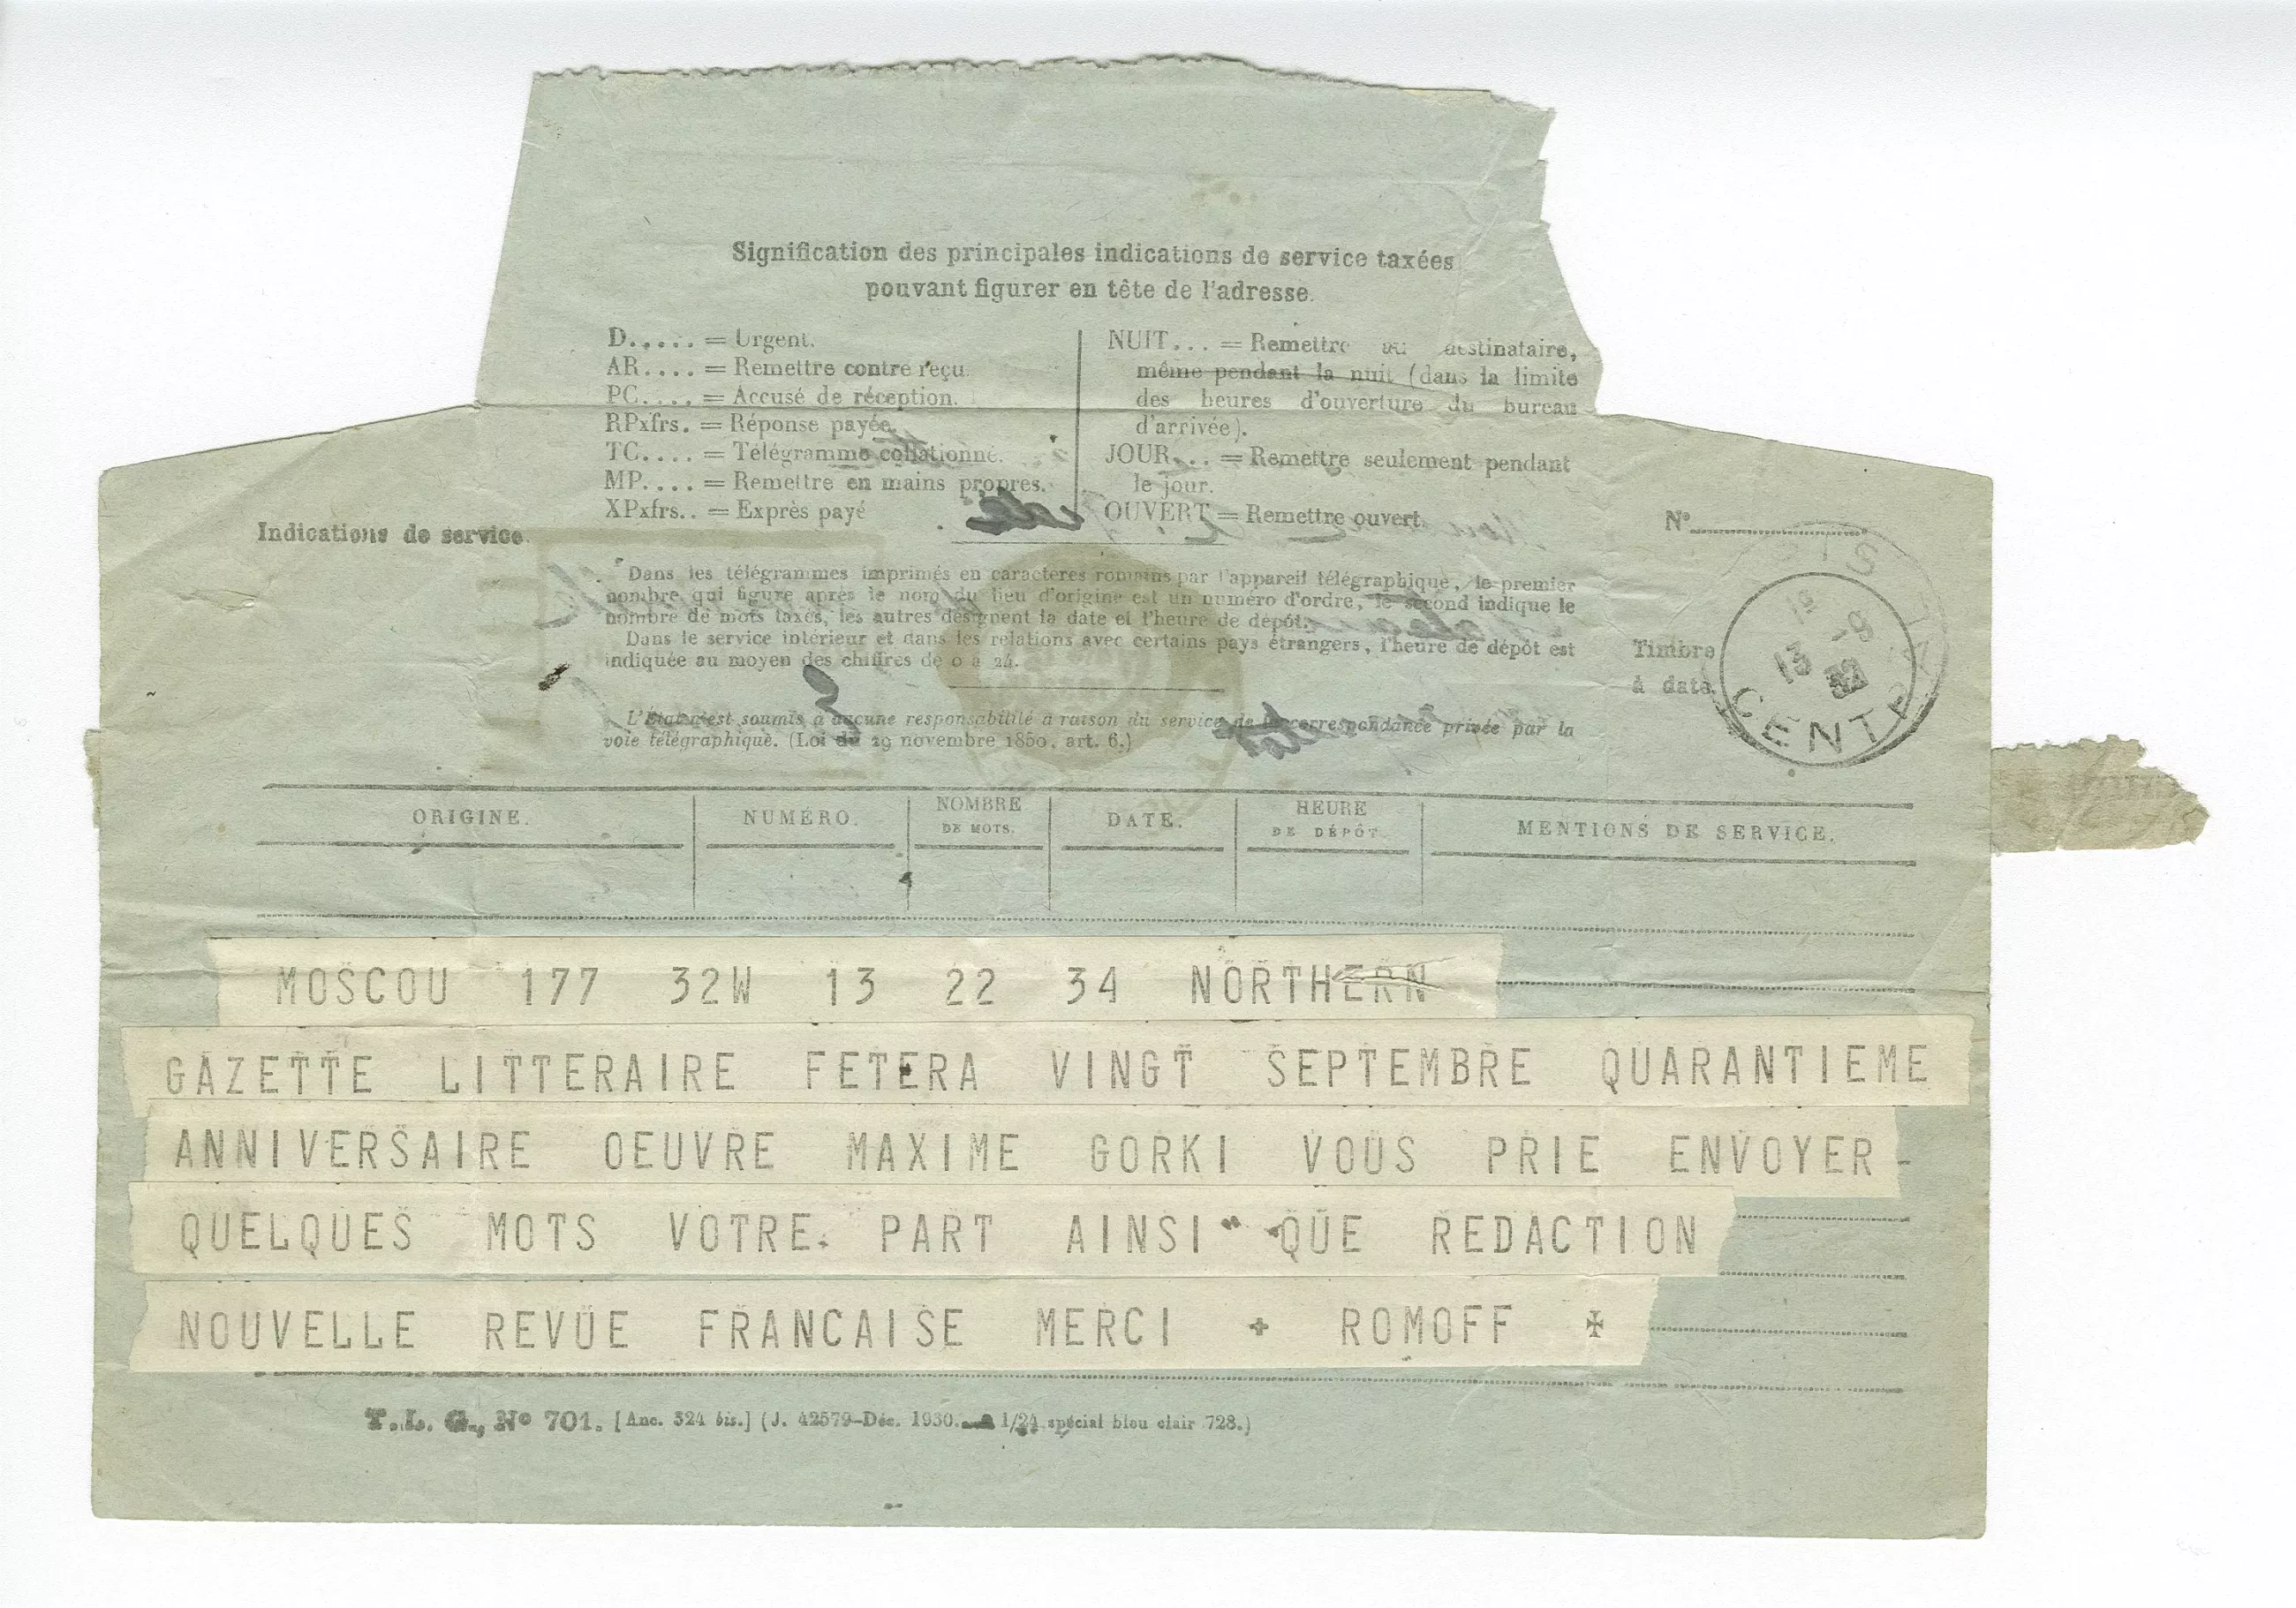 Signification des principales indications de service taxées
pouvant figurer en tête de l'adresse.
D..... = Urgent.
AR.... = Remettre contre reçu.
PC.... = Accusé de réception.
RPxfrs. = Réponse payée.
TC.... = Télégramme collationné.
MP.... = Remettre en mains propres.
XPxfrs.. = Exprès payé
NUIT... = Remettre au destinataire,
même pendant la nuit (dans la limite
des heures d'ouverture du bureau
d'arrivée).
JOUR... = Remettre seulement pendant
le jour.
OUVERT = Remettre ouvert.
Indications de service.
N°
Dans les télégrammes imprimés en caractères romains par l'appareil télégraphique, le premier
nombre qui figure après le nom du lieu d'origine est un numéro d'ordre, le second indique le
nombre de mots taxés, les autres désignent la date et l'heure de dépôt.
Dans le service intérieur et dans les relations avec certains pays étrangers, l'heure de dépôt est
indiquée au moyen des chiffres de 0 à 24.
Timbre
à date.
13 -9
32
CENTRAL
L'État n'est soumis à aucune responsabilité à raison du service de la correspondance privée par la
voie télégraphique. (Loi du 29 novembre 1850, art. 6.)
ORIGINE. NUMÉRO. NOMBRE DE MOTS. DATE. HEURE DE DÉPÔT. MENTIONS DE SERVICE.
MOSCOU 177 32W 13 22 34 NORTHERN
GAZETTE LITTERAIRE FETERA VINGT SEPTEMBRE QUARANTIEME
ANNIVERSAIRE OEUVRE MAXIME GORKI VOUS PRIE ENVOYER -
QUELQUES MOTS VOTRE PART AINSI QUE REDACTION
NOUVELLE REVUE FRANCAISE MERCI + ROMOFF +
T.L. G., N° 701. [Anc. 324 bis.] (J. 42579-Déc. 1930. 1/24 spécial bleu clair 728.)